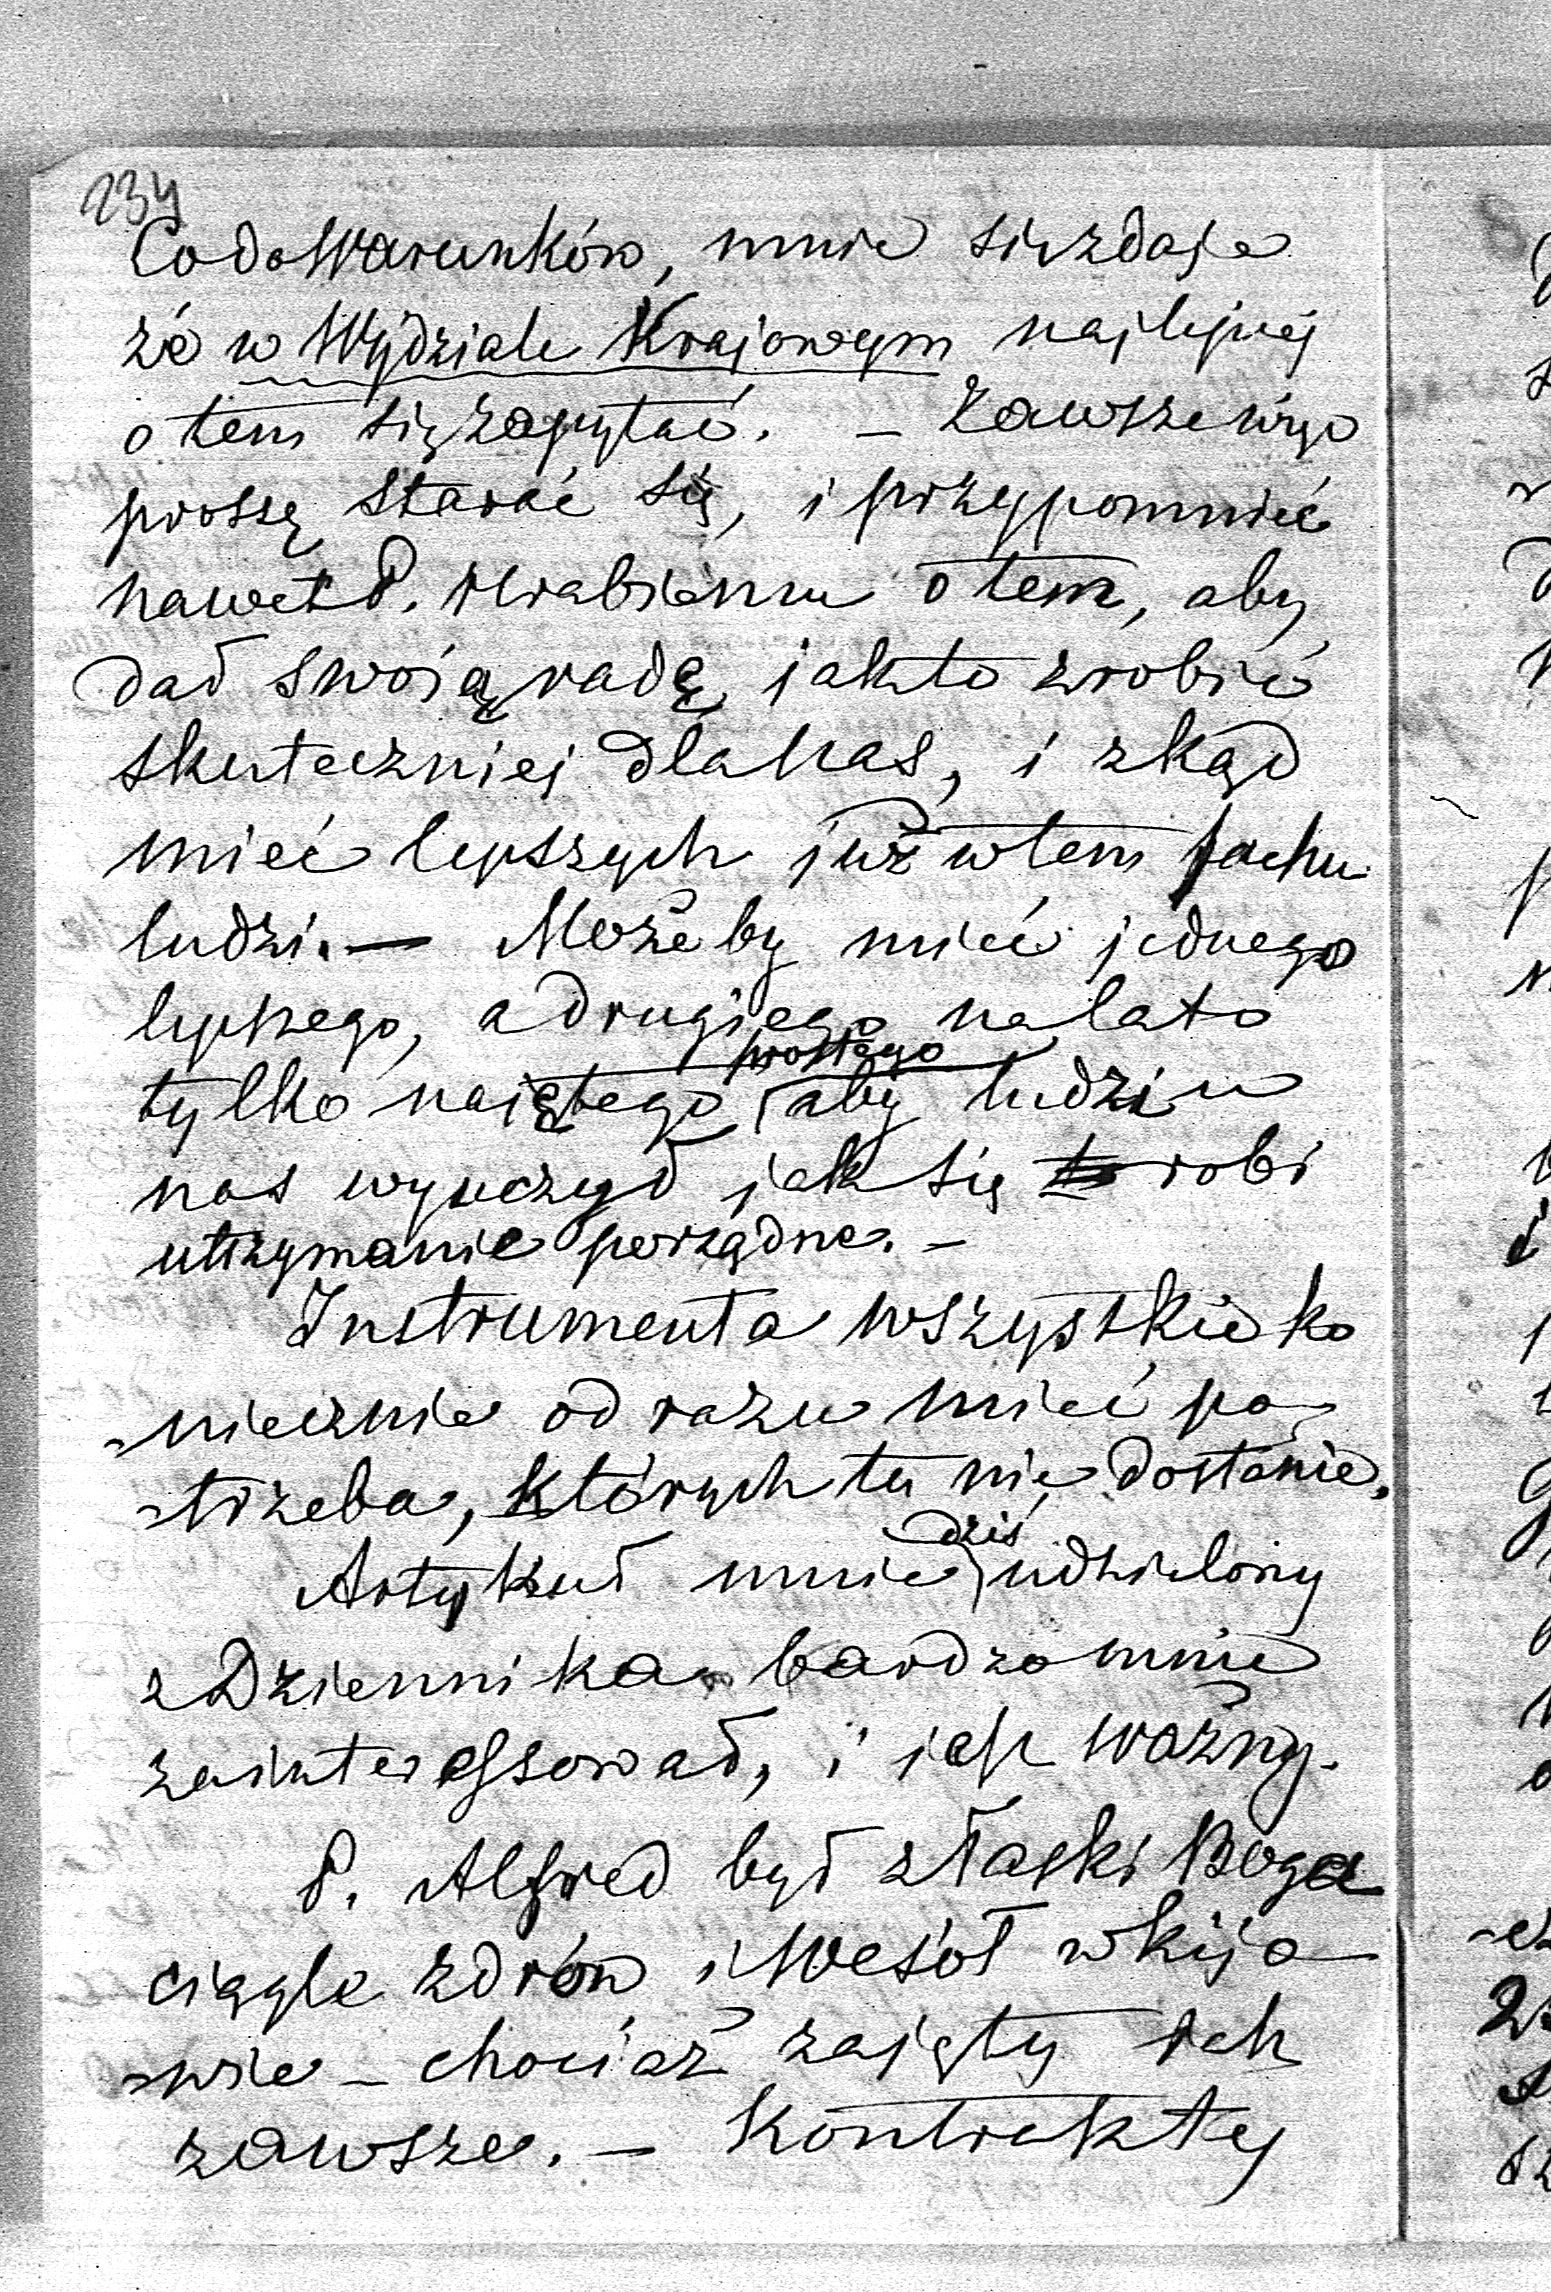 234
Co do Warunków, mnie się zdaje
że w Wydziale Krajowym najlepiej
o tem się zapytać. – Zawsze więc
proszę starać się, i przypomnieć
nawet P. Hrabiemu o tem, aby
dał swoią radę, jak to zrobić
skuteczniej dla nas, i zkąd
mieć lepszych już w tem fachu
ludzi. — Możeby mieć jednego
lepszego, a drugiego na lato
tylko najętego prostego aby ludzi u
nas wyuczył jak się to robi
utrzymanie porządne. –
Instrumenta wszystkie ko
niecznie od razu mieć po-
trzeba, których tu nie dostanie.
Artykuł mnie dziś udzielony
z Dziennika bardzo mnie
zainteressował, i jest ważny.
P. Alfred był z łaski Boga
ciągle zdrów i wesół w Kijo
wie – chociaż zajęty jak
zawsze. – Kontrakty